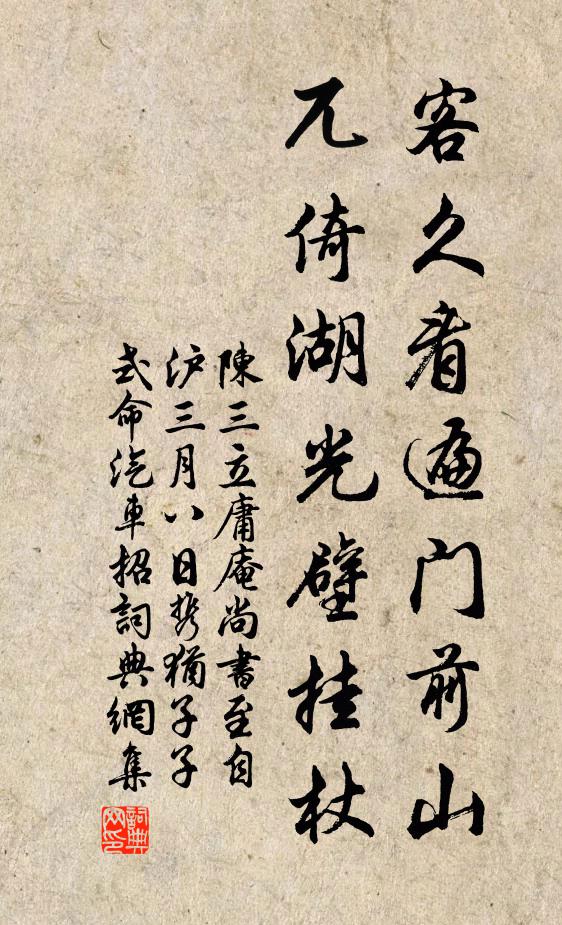 客久看遍门前山
兀倚湖光壁挂杖
陳三立庸庵尚書至自
沪三月八日携猶子子
式命汽車招詞典網集
詞典网印